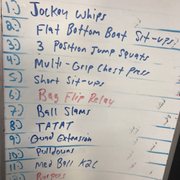 1.) Jockey Whips
2.) Flat Bottom Boat Sit-ups
3.) 3 Position Jump Squats
4.) Multi-Grip Chest Press
5.) Short Sit-ups
6.) Bag Flip Relay
7.) Ball Slams
8.) TATAT
9.) Quad Extension
10.) Pulldowns
11.) Med Ball K2C
Burpees